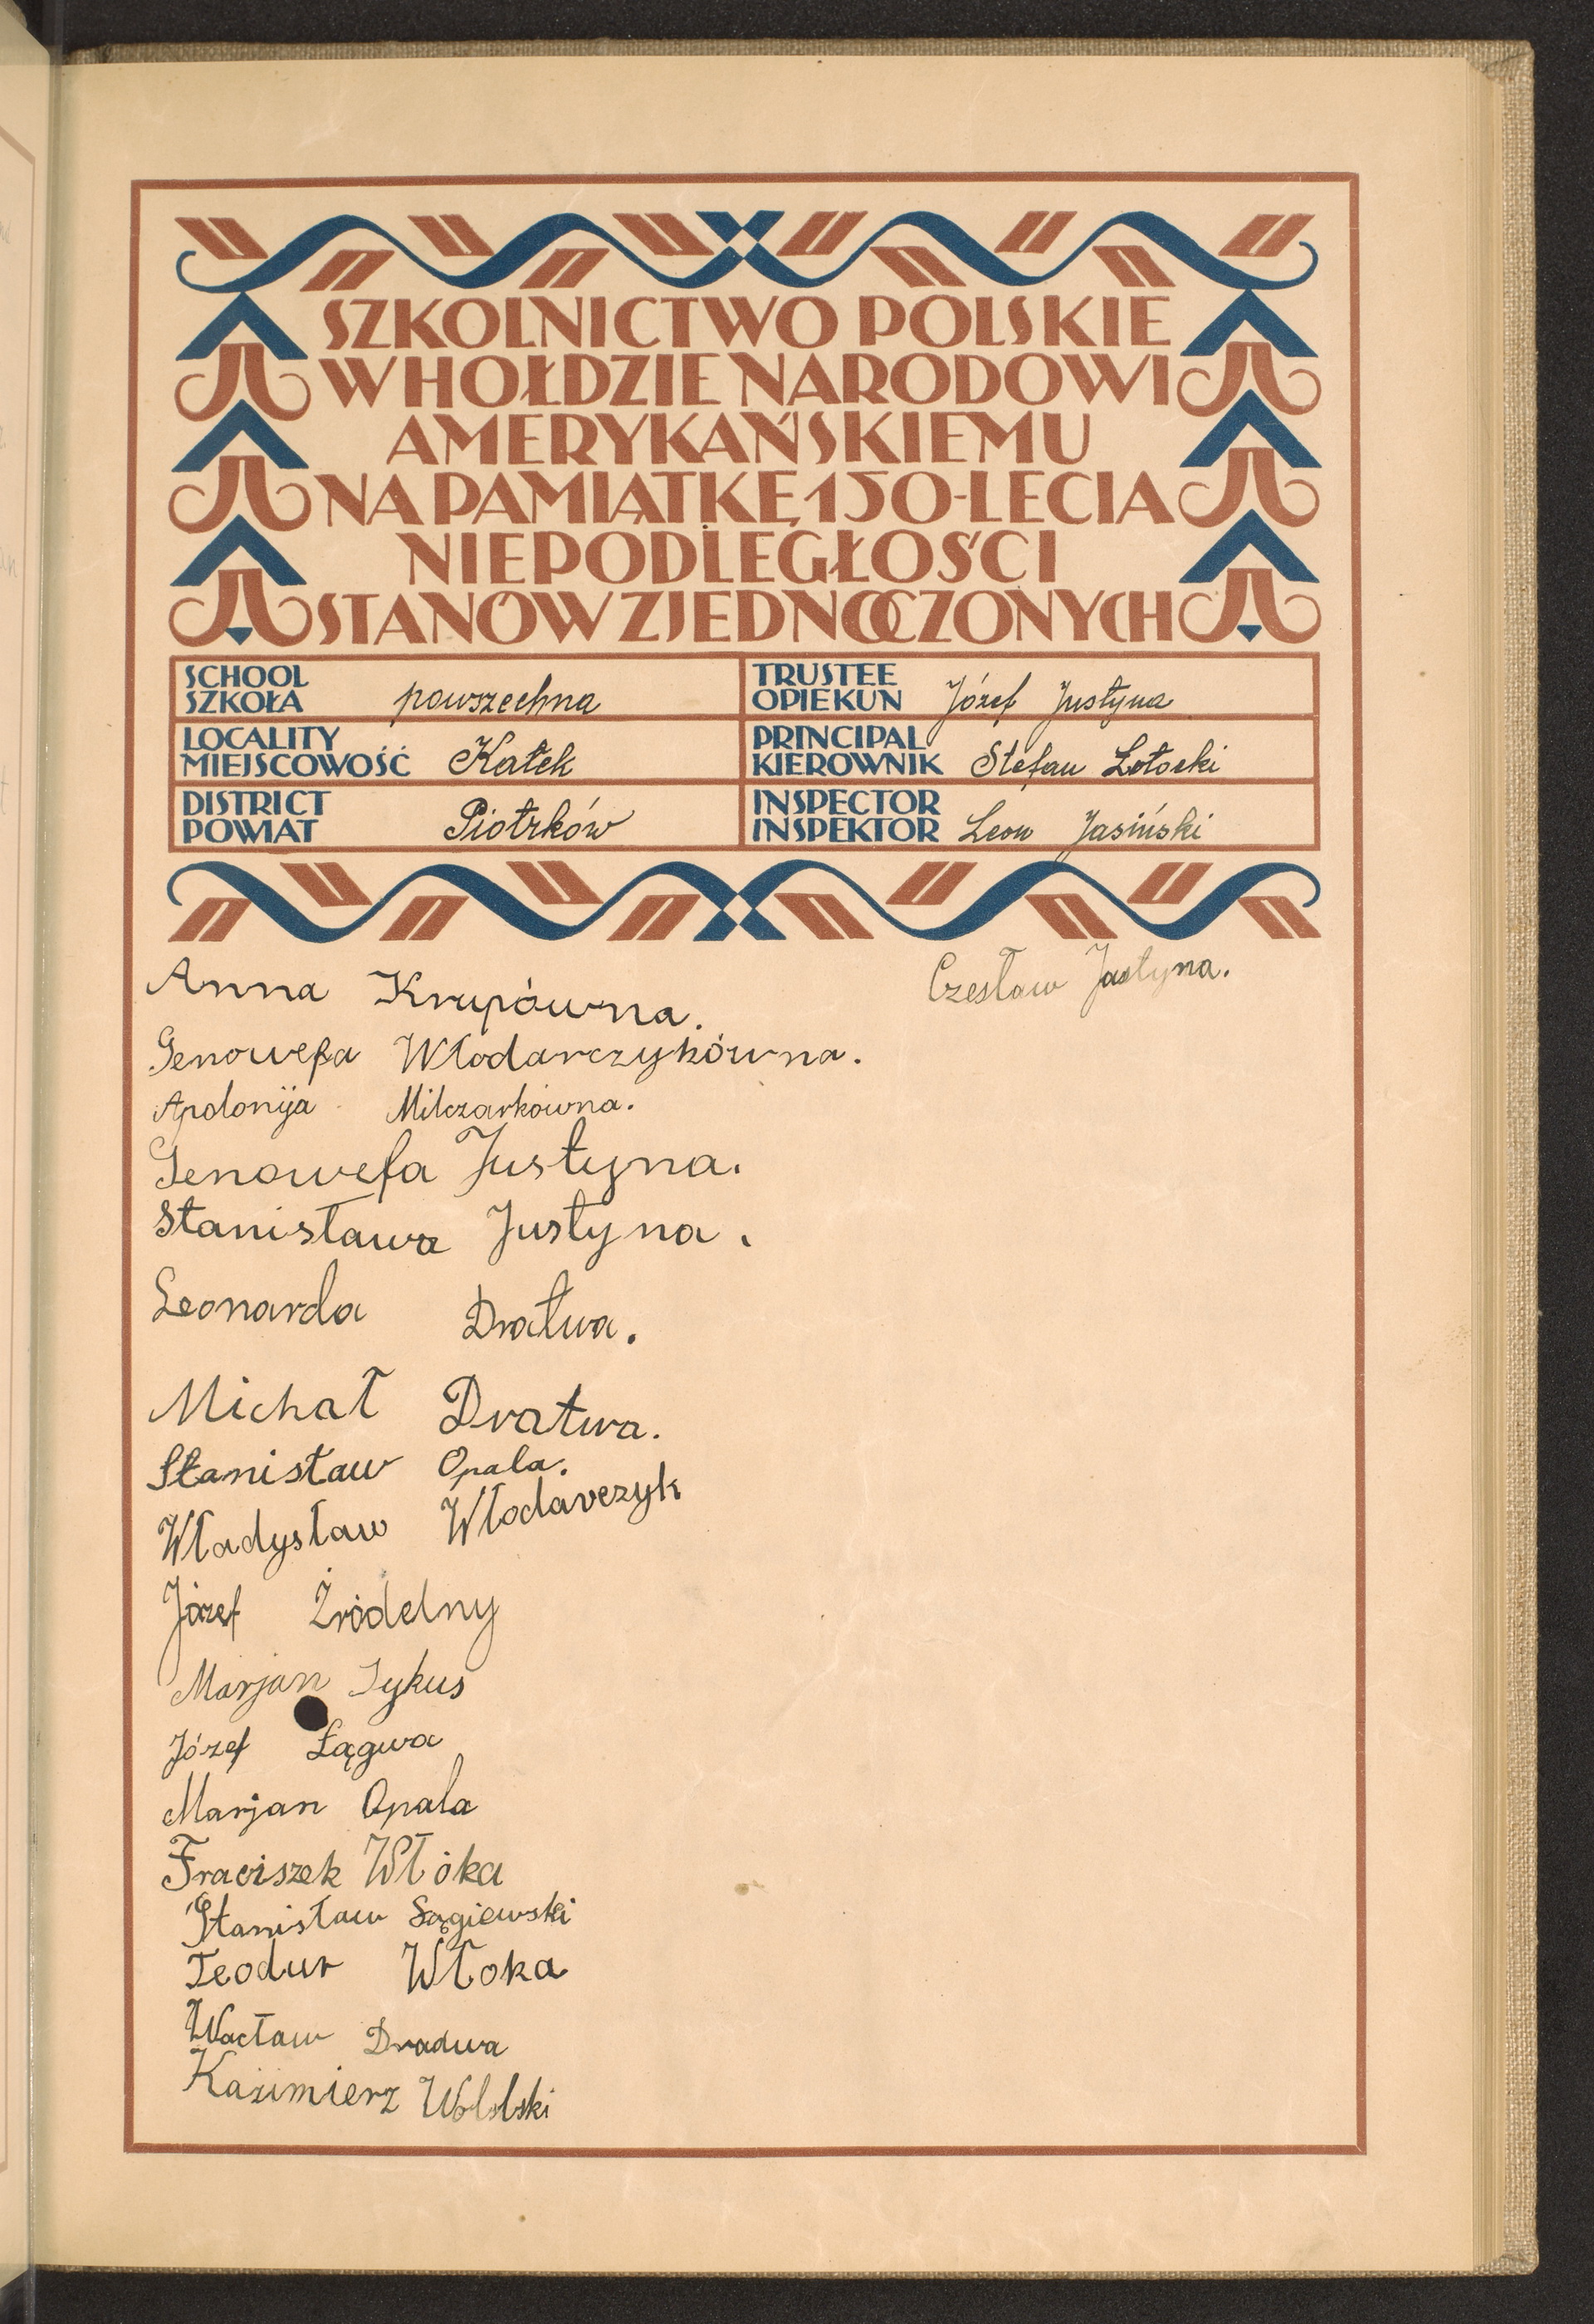 SZKOLNICTWO POLSKIE
W HOŁDZIE NARODOWI
AMERYKAŃSKIEMU
NA PAMIĄTKĘ 150-LECIA
NIEPODLEGŁOŚCI
STANÓW ZJEDNOCZONYCH
SCHOOL
SZKOŁA powszechna
TRUSTEE
OPIEKUN Józef Justyna
LOCALITY
MIEJSCOWOŚĆ Kałek
PRINCIPAL
KIEROWNIK Stefan Łotocki
DISTRICT
POWIAT Piotrków
INSPECTOR
INSPEKTOR Leon Jasiński
Anna Krupówna.
Genowefa Włodarczykówna.
Apolonija Milczarkówna.
Genowefa Justyna.
Stanisława Justyna.
Leonarda Dratwa.
Michał Dratwa.
Stanisław Opala.
Władysław Włodarczyk
Józef Źródelny
Marjan Tykus
Józef Łągwa
Marjan Opala
Fraciszek Włóka
Stanisław Sągiewski
Teodur Włoka
Wacław Dradwa
Kazimierz
Czesław Justyna.